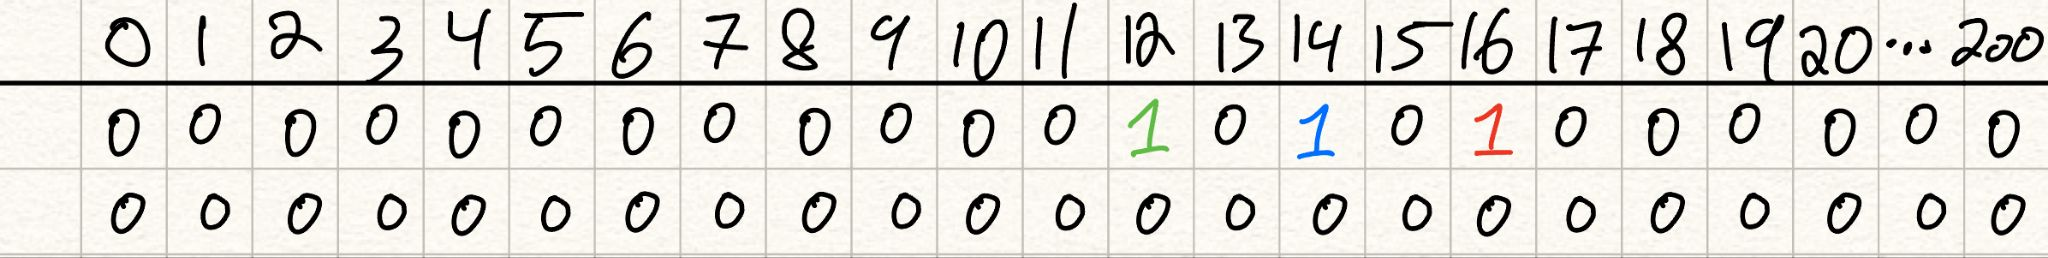 0 1 2 3 4 5 6 7 8 9 10 11 12 13 14 15 16 17 18 19 20 ... 200
0 0 0 0 0 0 0 0 0 0 0 0 1 0 1 0 1 0 0 0 0 0 0
0 0 0 0 0 0 0 0 0 0 0 0 0 0 0 0 0 0 0 0 0 0 0